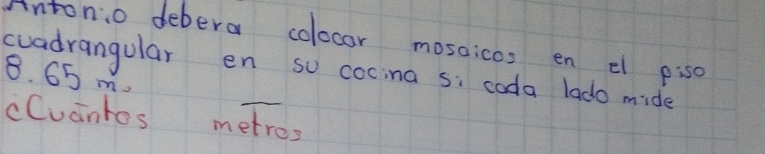 Antonio debera colocar mosaicos en el piso
cuadrangular en su cocina si cada lado mide
8.65 m.
¿Cuántos metros